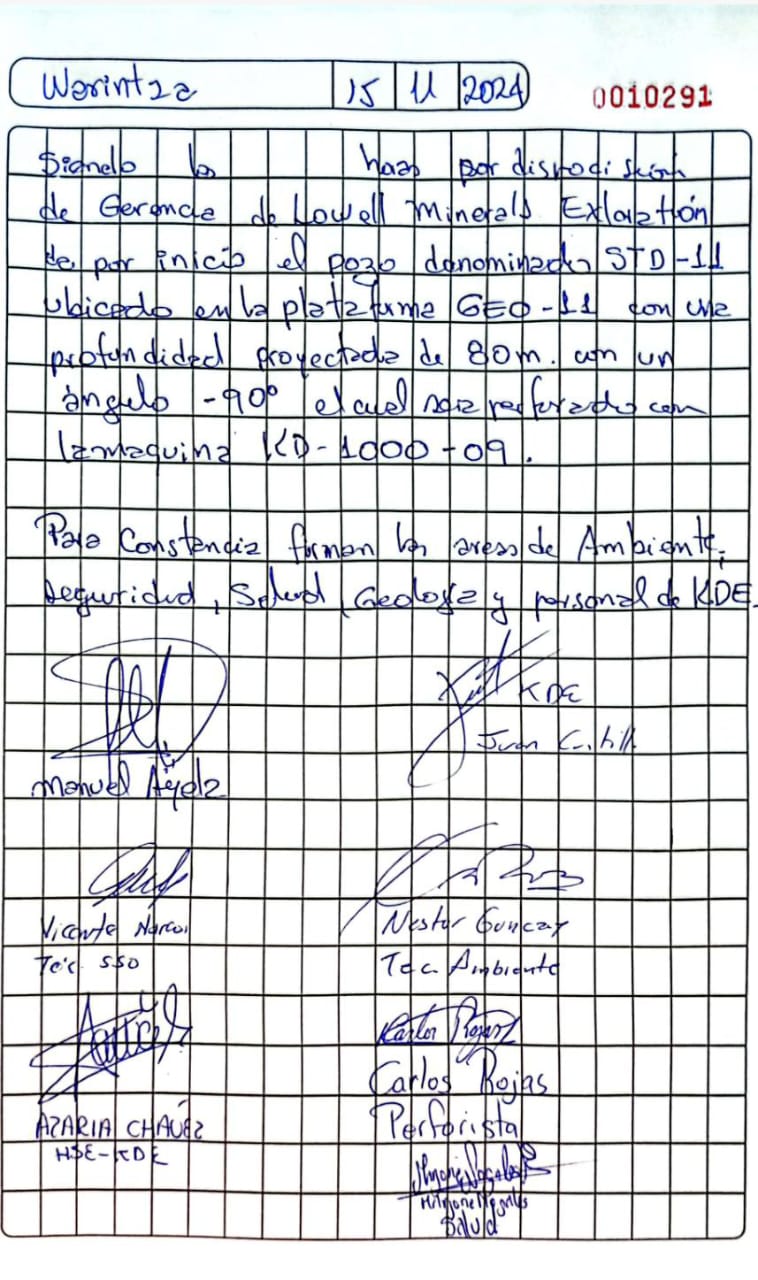 Warintza 15 11 2024 0010291
Siendo las horas por disposición
de Gerencia de Lowell Minerals Exloration
de por inicio el pozo denominado STD-11
ubicado en la plataforma GEO-11 con una
profundidad proyectada de 80m. con un
ángulo -90° el cual sera perforado con
la maquina KD-1000-09.
Para Constancia firman las areas de Ambiente,
Seguridad, Salud, Geología y personal de KDE.
KDE
Juan
Manuel Ayala
Vicente
Nestor Guncay
Tec SSO
Tec. Ambiente
Carlos Rojas
Carlos Rojas
AZARIA CHAVEZ
Perforista
HSE-KDE
Salud